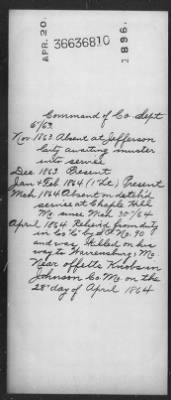 APR. 20.
36636810
1896.
Command of Co Sept
6/63.
Nov. 1863 Absent at Jefferson
City awaiting muster
into service
Dec 1863 Present
Jan & Feb 1864 (1st Lt.) Present
Mch 1864 Absent on det'ch'd
service at Chaple Hill
Mo since Mch 30/64
April 1864 Relievd from duty
in Co "G" by S.O. No. 90
and was killed on his
way to Warrensburg, Mo.
Near Offetts Knobs in
Johnson Co. Mo. on the
28" day of April 1864